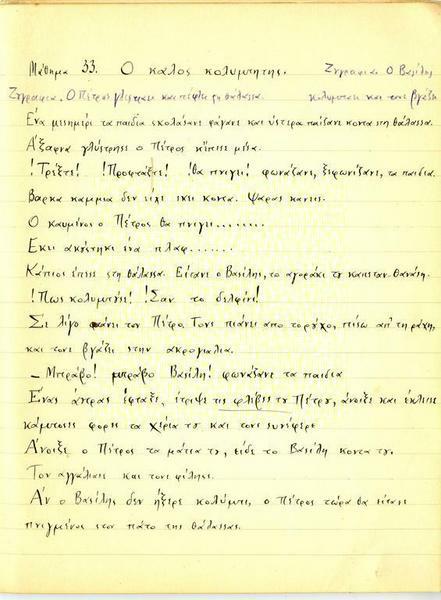 Μάθημα 33. Ο καλος κολυμπητης. Ζυγραφια. Ο Βασίλης
Ζυγραφια. Ο Πέτρος γλίστρισε και πέφτι στη θάλασσα. κολυμπαει και τονε βγάζι
Ενα μεσημέρι τα παιδια σκολάσανε φάγανε και ύστερα παίζανε κοντα στη θάλασσα.
Άξαφνα γλίστρησε ο Πέτρος κ'έπεσε μέσα.
! Τρέξτε! ! Προφτάξτε! ! θα πνιγεί! φωνάζανε, ξεφωνίζανε, τα παιδια.
Βαρκα καμμια δεν είχε εκει κοντα. Ψαρας κανεις.
Ο καυμένος ο Πέτρος θα πνιγει........
Εκει ακούστηκε ένα πλαφ.......
Κάπιος έπεσε στη θάλασσα. Είτανε ο Βασίλης, το αγοράκι τυ καπεταν Θανάση.
! Πως κολυμπάει! ! Σαν το δελφίνι!
Σε λίγο φτάνει τον Πέτρο. Τονε πιάνει απο το ρύχο, πίσω απ' τη ράχη,
και τονε βγάζει στην ακρογιαλια.
– Μπράβο! μπράβο Βασίλη! φωνάξανε τα παιδια
Ενας άντρας έφταξε, έτριψε τις φλέβες τυ Πέτρυ, άνοιξε και έκλεισε
κάμποσες φορες τα χέρια τυ και τονε συνέφερε
Άνοιξε ο Πέτρος τα μάτια τυ, είδε το Βασίλη κοντα τυ.
Τον αγγάλιασε και τον φίλησε.
Άν ο Βασίλης δεν ήξερε κολύμπι, ο Πέτρος τώρα θα είτανε
πνιγμένος στον πάτο της θάλασσας.